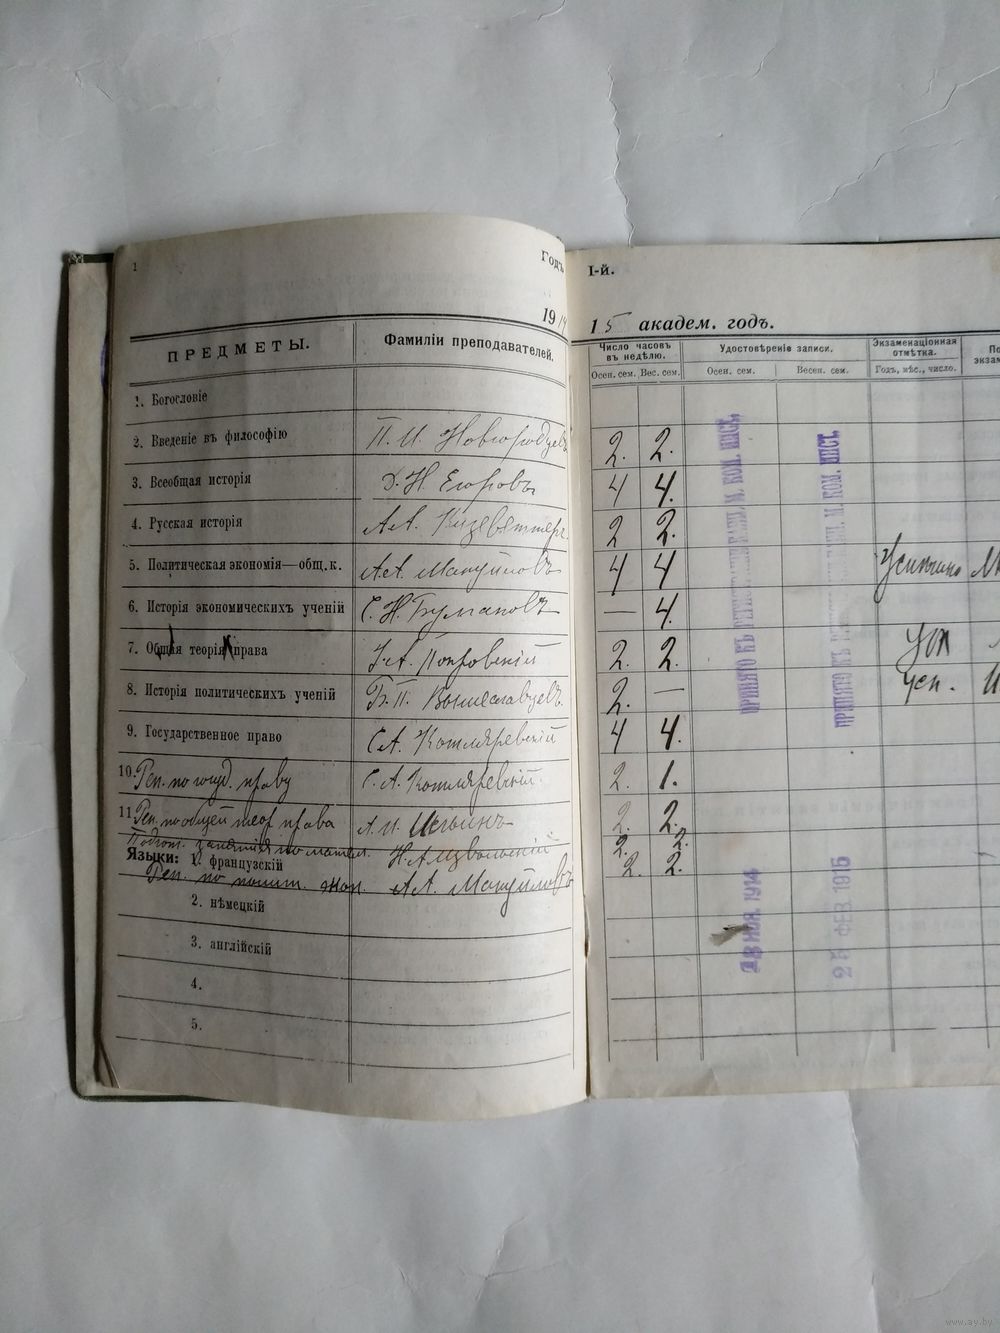 1
Годъ I-й.
1914 15 академ. годъ.
ПРЕДМЕТЫ. Фамиліи преподавателей. Число часовъ въ недѣлю. Удостовѣреніе записи. Экзаменаціонная отмѣтка.
Осен. сем. Вес. сем. Осен. сем. Весен. сем. Годъ, мѣс., число.
1. Богословіе
2. Введеніе въ философію П. И. Новгородцевъ 2. 2.
3. Всеобщая исторія Д. Н. Егоровъ 4 4.
4. Русская исторія А. А. Кизеветтеръ 2 2.
5. Политическая экономія—общ. к. А. А. Мануйловъ 4 4 Успѣшно
6. Исторія экономическихъ ученій С. Н. Булгаковъ — 4.
7. Общая теорія права І. А. Покровскій 2. 2. Усп
8. Исторія политическихъ ученій Б. П. Вышеславцевъ 2. — Усп.
9. Государственное право С. А. Котляревскій 4 4.
10. Реп. по госуд. праву С. А. Котляревскій. 2. 1.
11. Реп. по общей теор права И. Ильинъ 2. 2.
занятія по 2. 2.
Языки: 1. французскій
Реп. по полит. экон. А. А. Мануйловъ 2. 2.
2. нѣмецкій
3. англійскій
4.
5.
ПРИНЯТО КЪ РЕГИСТРАЦІИ КАНЦ. М. КОМ. ИНСТ.
18 НОЯ. 1914
ПРИНЯТО КЪ РЕГИСТРАЦІИ КАНЦ. М. КОМ. ИНСТ.
25 ФЕВ. 1915
www.ay.by